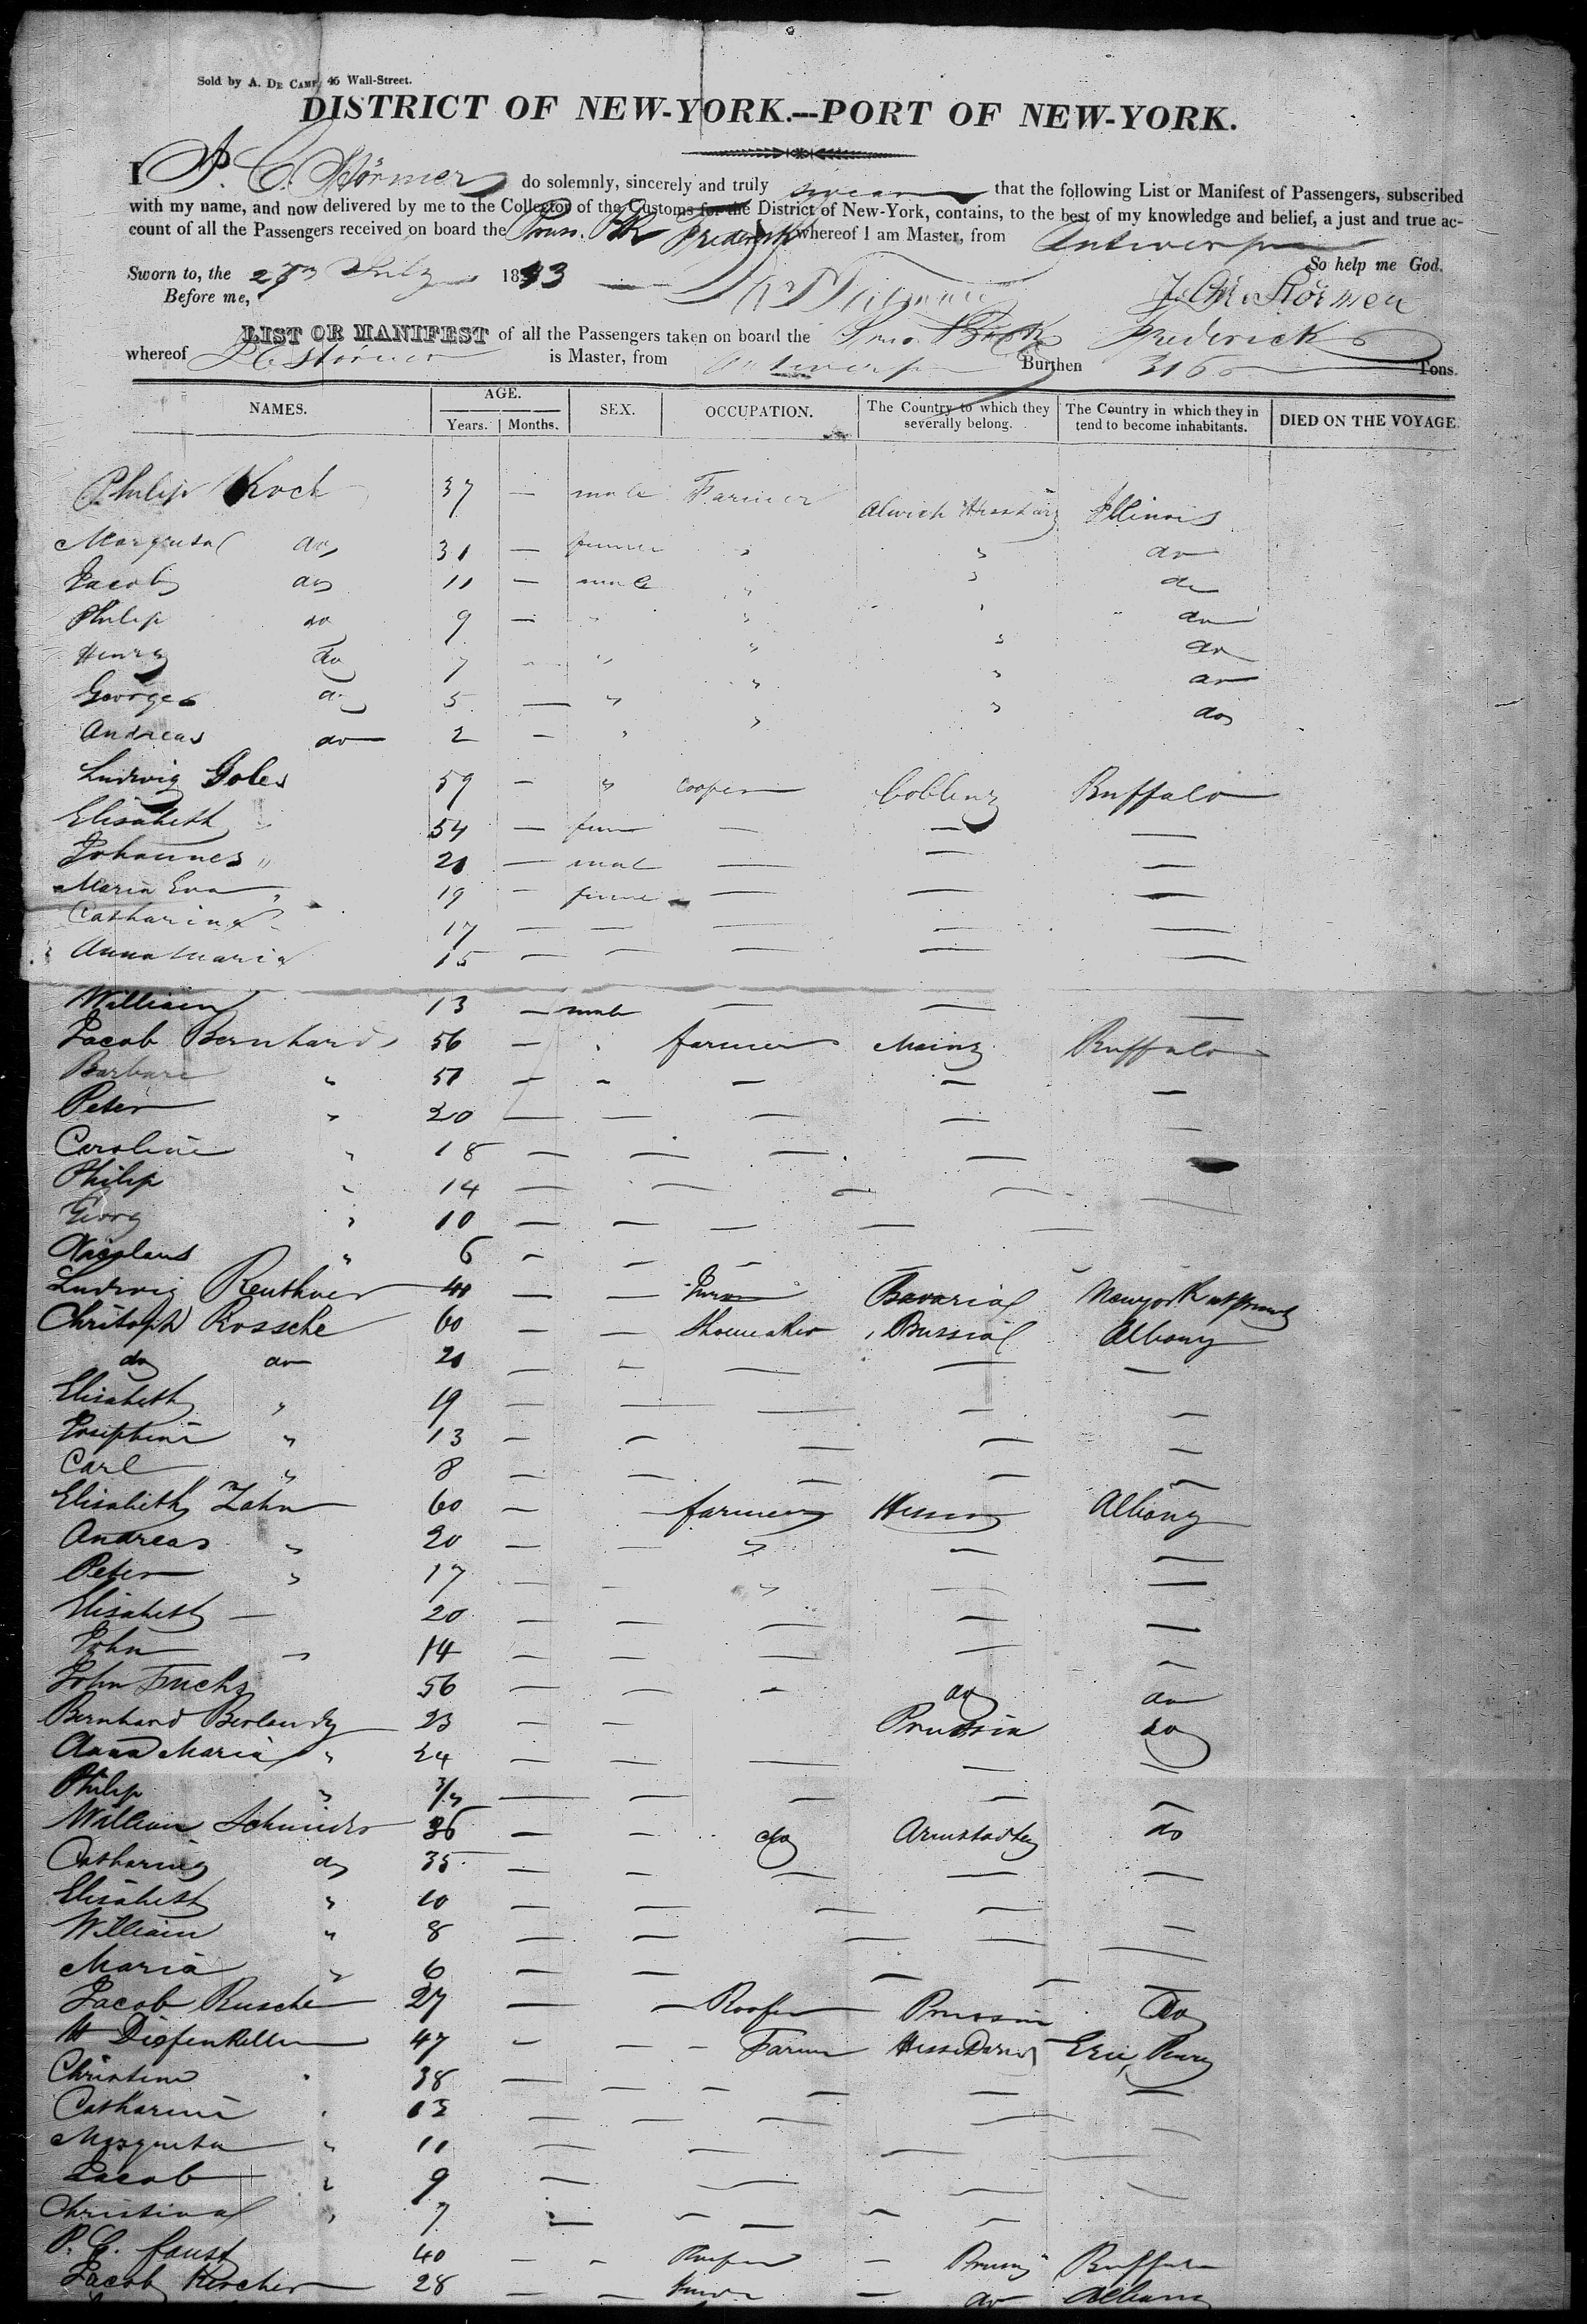 Sold by A. DE CAMP, 45 Wall-Street.
DISTRICT OF NEW-YORK.---PORT OF NEW-YORK.
I P. C. Störmer do solemnly, sincerely and truly swear that the following List or Manifest of Passengers, subscribed
with my name, and now delivered by me to the Collector of the Customs for the District of New-York, contains, to the best of my knowledge and belief, a just and true ac-
count of all the Passengers received on board the Frederick whereof I am Master, from Antwerp
So help me God.
Sworn to, the 27 July 1843
Before me, Störmer
LIST OR MANIFEST of all the Passengers taken on board the Frederick
whereof P C Störmer is Master, from Antwerp Burthen 316 Tons.
NAMES. AGE. SEX. OCCUPATION. The Country to which they severally belong. The Country in which they intend to become inhabitants. DIED ON THE VOYAGE.
Years. Months.
Philip Koch 37 — male Farmer Illinois
Margreta do 31 — " " do
Jacob do 11 — male " " do
Philip do 9 — " " " do
Henry do 7 — " " " do
George do 5 — " " " do
Andreas do 2 — " " " do
Ludwig Goles 59 — " Cooper Coblenz Buffalo
Elisabeth " 54 — fem — — —
Johannes " 21 — male — — —
Maria Eva " 19 — — — —
Catharina 17 — — — — —
Anna Maria 15 — — — — —
William 13 — male — — —
Jacob Bernhard 56 — " farmer Mainz Buffalo
Barbara " 51 — " — — —
Peter " 20 — — — — —
Caroline " 18 — — — —
Philip " 14 — — — — —
Georg " 10 — — — — —
Nicolaus " 6 — — —
Ludwig 41 — — Bavaria Newyork
Christoph Rossche 60 — — Shoemaker Prussia Albany
do do 21 — — — — —
Elisabeth " 19 — — — — —
Josephine " 13 — — — — —
Carl " 8 — — — — —
Elisabeth Zahn 60 — — farmer Albany
Andreas " 20 — — " — —
Peter " 17 — — " — —
Elisabeth — 20 — — — — —
John " 14 — — — — —
John Fuchs 56 — — — do do
Bernhard 23 — — Prussia do
Anna Maria " 24 — — — — —
Philip " — — — — —
William Schnieder 36 — — do do
Catharine do 35 — — — — —
Elisabeth " 10 — — — —
William " 8 — — — — —
Maria " 6 — — — —
Jacob Rusche 27 — — Roofer Prussia do
H Diefenkeller 47 — — Farmer Hesse Darms Erie, Penn
Christine " 38 — — — — —
Catharine " 13 — — — — —
Margreta " 11 — — — —
Jacob " 9 — — — —
Christina " 7 — — — — —
P. G. Faust 40 — " — Buffalo
Jacob Kercher 28 — — — do Albany